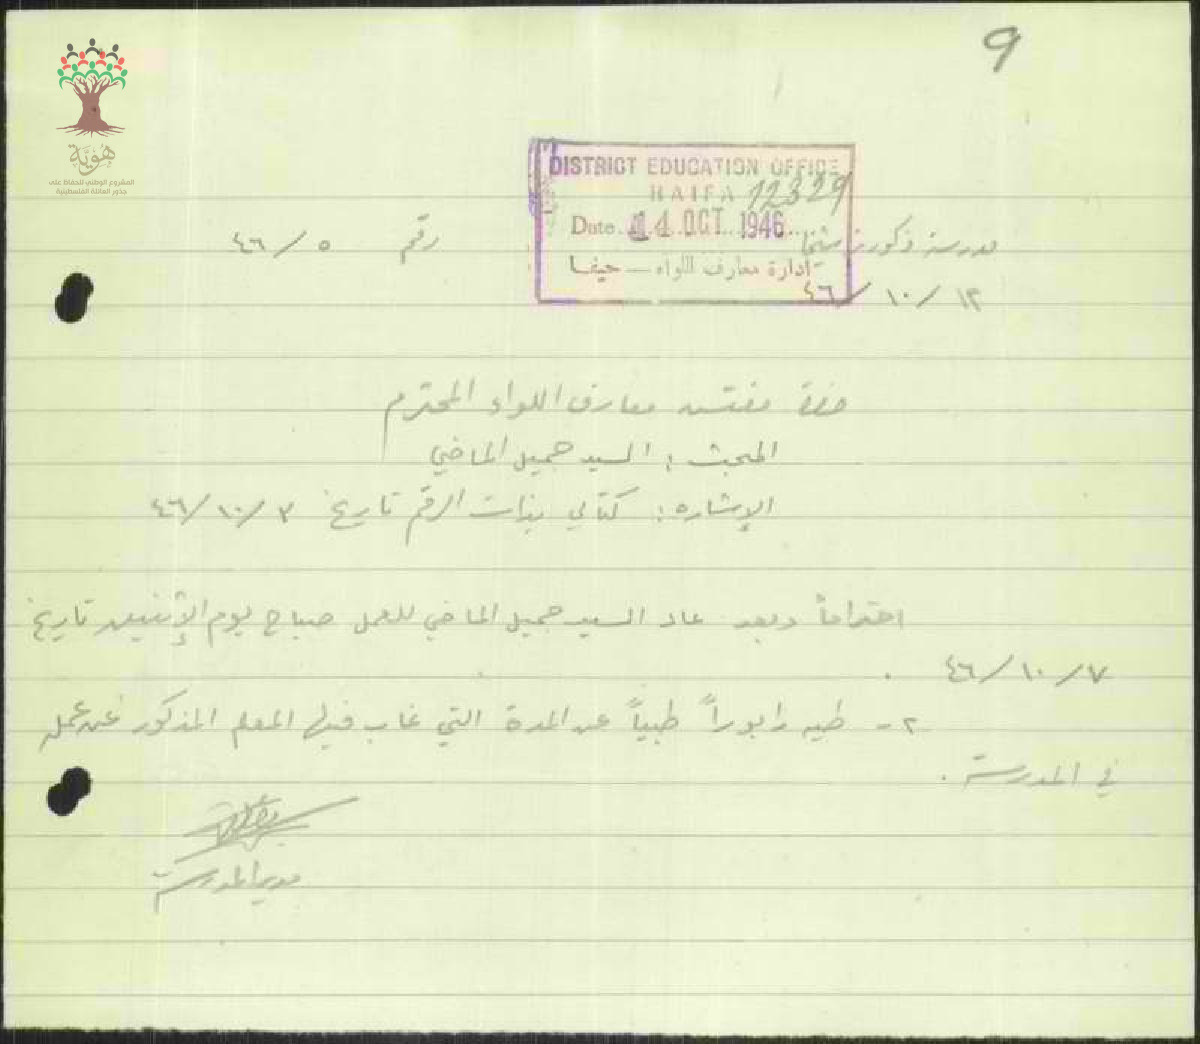 9
هوية
المشروع الوطني للحفاظ على
جذور العائلة الفلسطينية
DISTRICT EDUCATION OFFICE
HAIFA 12329
Date 14 OCT 1946
ادارة معارف اللواء — حيفا
مدرسة ذكور
رقم ٥/٤٦
١٢/١٠/٤٦
حضرة مفتش معارف اللواء المحترم
المبحث : السيد جميل الماضي
الإشارة : كتابي بذات الرقم تاريخ ٣/١٠/٤٦
احتراماً وبعد عاد السيد جميل الماضي للعمل صباح يوم الإثنين تاريخ
٧/١٠/٤٦ .
٢- طيه رابوراً طبياً عن المدة التي غاب فيها المعلم المذكور عن عمله
في المدرسة .
مدير المدرسة